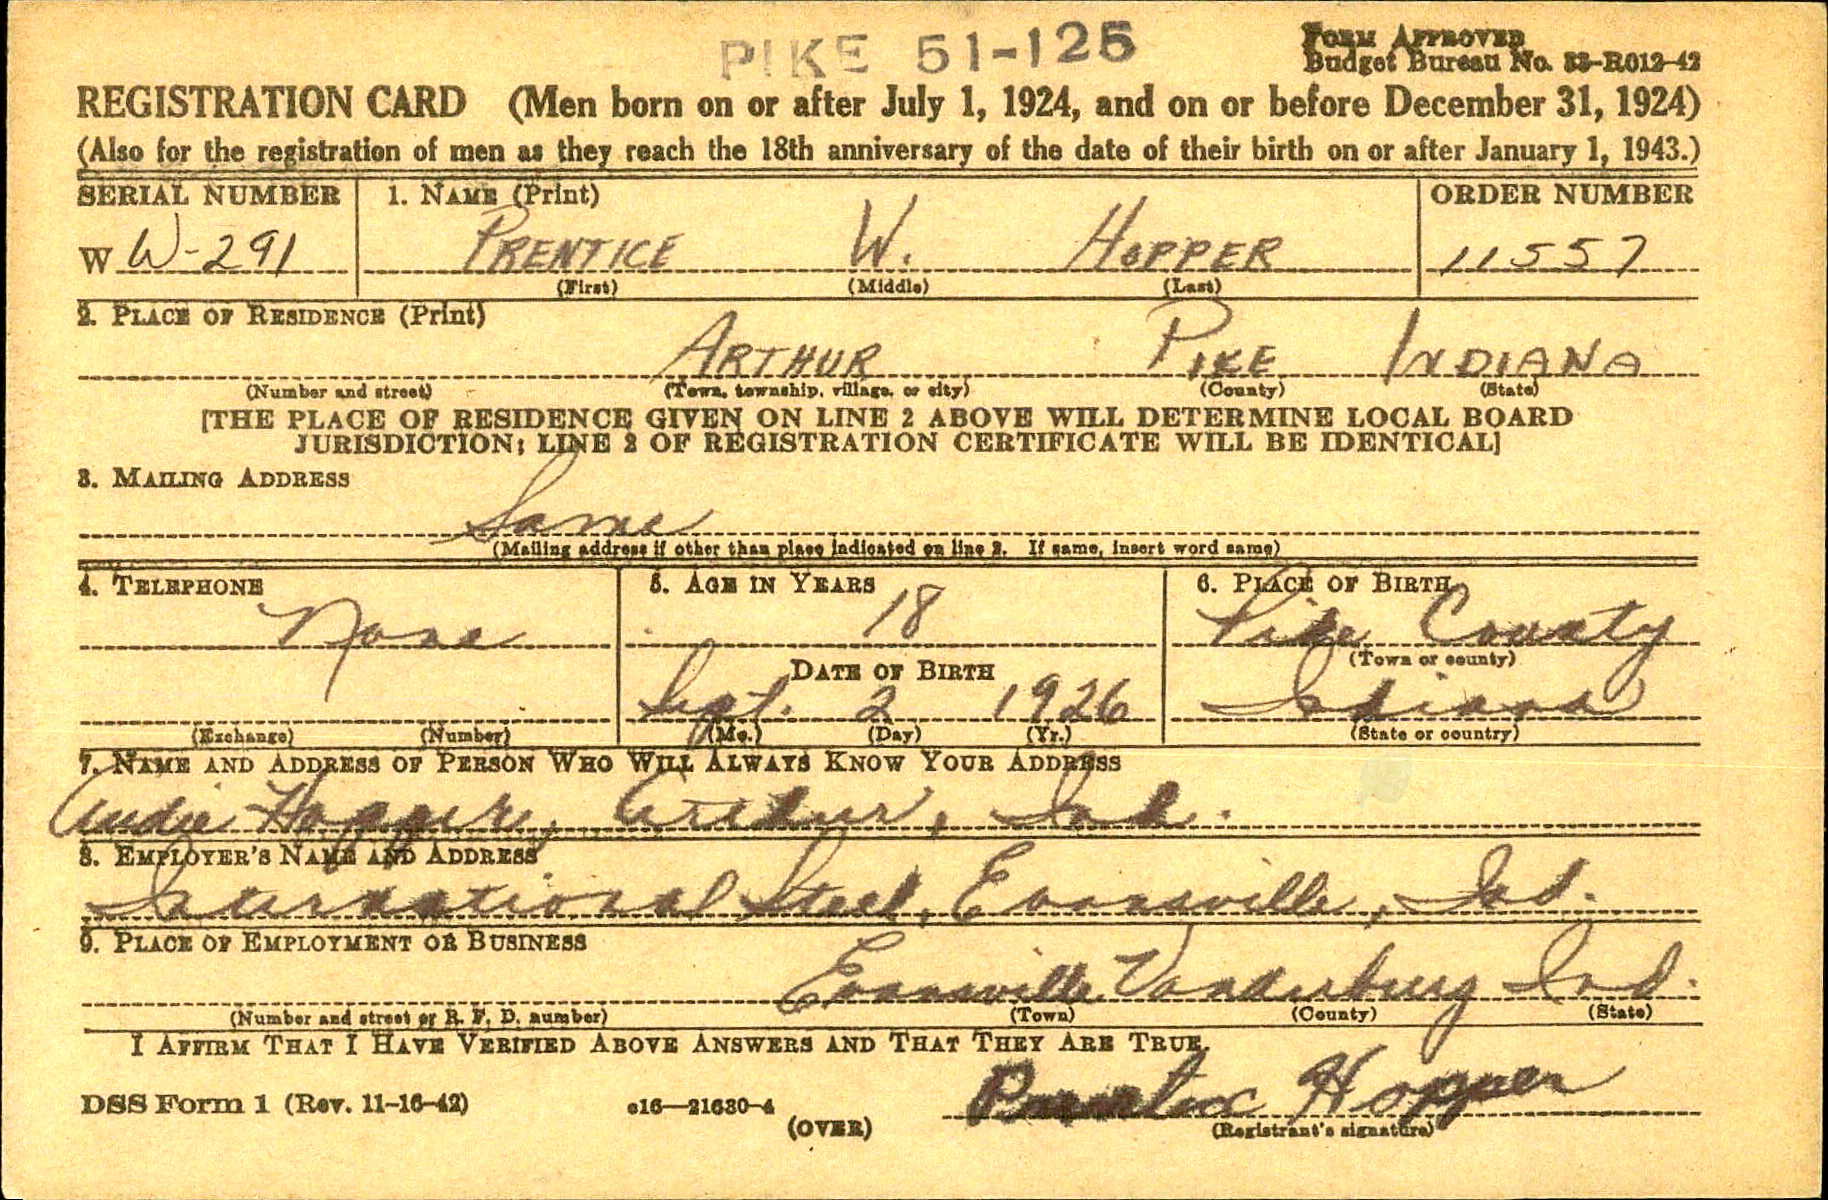 PIKE 51-125
FORM APPROVED
Budget Bureau No. 33-R012-42
REGISTRATION CARD (Men born on or after July 1, 1924, and on or before December 31, 1924)
(Also for the registration of men as they reach the 18th anniversary of the date of their birth on or after January 1, 1943.)
SERIAL NUMBER 1. NAME (Print) ORDER NUMBER
W W-291 PRENTICE W. HOPPER 11557
(First) (Middle) (Last)
2. PLACE OF RESIDENCE (Print)
ARTHUR PIKE INDIANA
(Number and street) (Town, township, village, or city) (County) (State)
[THE PLACE OF RESIDENCE GIVEN ON LINE 2 ABOVE WILL DETERMINE LOCAL BOARD
JURISDICTION; LINE 2 OF REGISTRATION CERTIFICATE WILL BE IDENTICAL]
3. MAILING ADDRESS
Same
(Mailing address if other than place indicated on line 2. If same, insert word same)
4. TELEPHONE 5. AGE IN YEARS 6. PLACE OF BIRTH
None 18 Pike County
DATE OF BIRTH (Town or county)
Sept. 2 1926 Indiana
(Exchange) (Number) (Mo.) (Day) (Yr.) (State or country)
7. NAME AND ADDRESS OF PERSON WHO WILL ALWAYS KNOW YOUR ADDRESS
Audie Hopper, Arthur, Ind.
8. EMPLOYER'S NAME AND ADDRESS
International Steel, Evansville, Ind.
9. PLACE OF EMPLOYMENT OR BUSINESS
Evansville Vanderburg Ind.
(Number and street or R. F. D. number) (Town) (County) (State)
I AFFIRM THAT I HAVE VERIFIED ABOVE ANSWERS AND THAT THEY ARE TRUE.
DSS Form 1 (Rev. 11-16-42) c16—21630-4 Hopper
(OVER) (Registrant's signature)